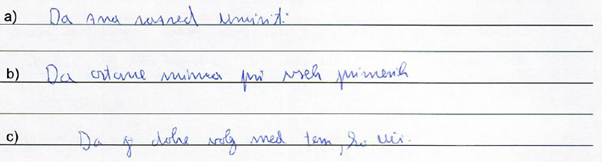 a) Da zna razred umiriti.
b) Da ostane mirna pri vseh primerih
c) Da je dobre volje med tem, ko uči.